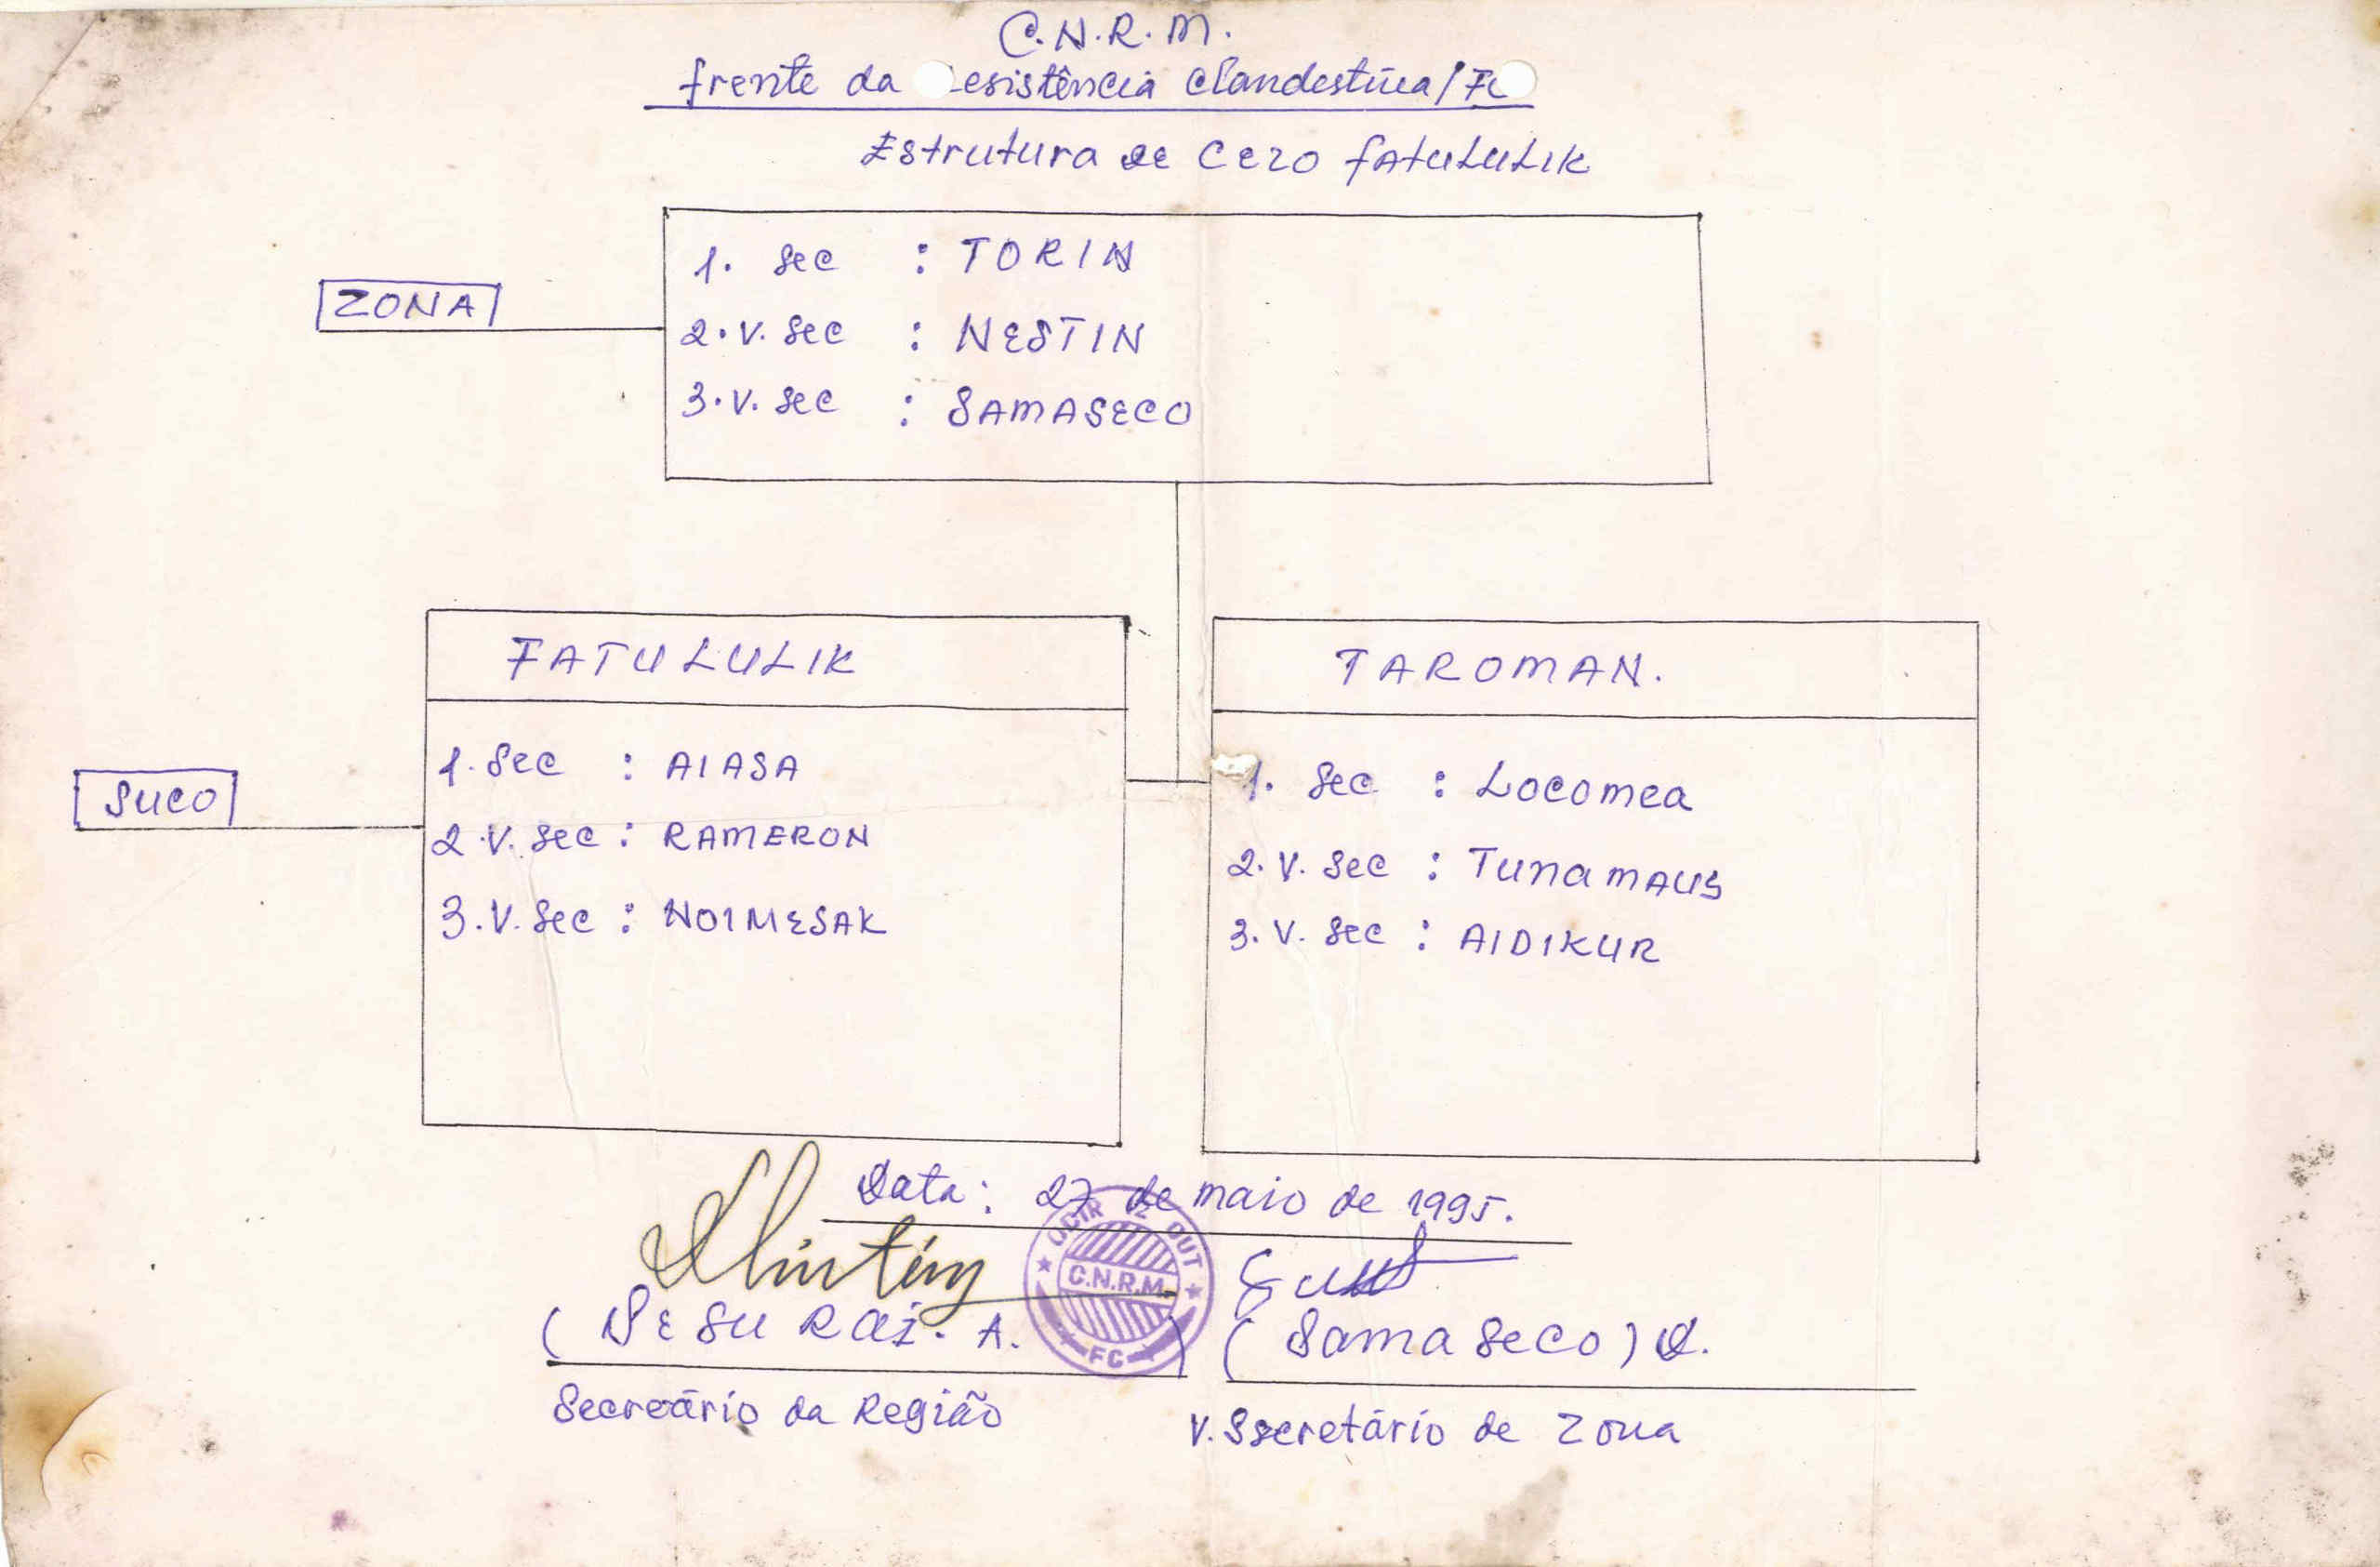 C.N.R.M.
frente da esistência Clandestina/F
Estrutura de Cezo fatululik
ZONA
1. Sec : TORIN
2. V. Sec : NESTIN
3. V. Sec : SAMASECO
FATULULIK
TAROMAN.
SUCO
1. Sec : AIASA
2. V. Sec : RAMERON
3. V. Sec : NOIMESAK
1. Sec : Locomea
2. V. Sec : TunamAUS
3. V. Sec : AIDIKUR
Data: 27 de maio de 1995.
C.N.R.M.
FC
( A. )
(Sama Seco)
Secreário da Região
V. Ssecretário de Zona